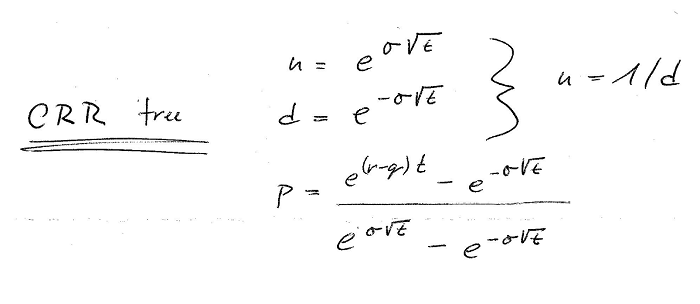 CRR tree
u = e^{σ√t}
d = e^{-σ√t} } u = 1/d
p = \frac{e^{(r-q)t} - e^{-σ√t}}{e^{σ√t} - e^{-σ√t}}